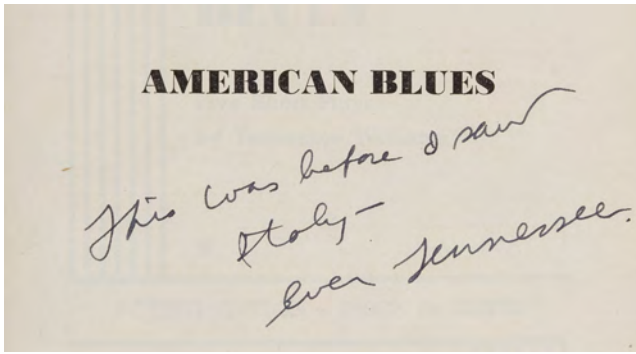 AMERICAN BLUES
This was before I saw
Italy —
Ever Tennessee.